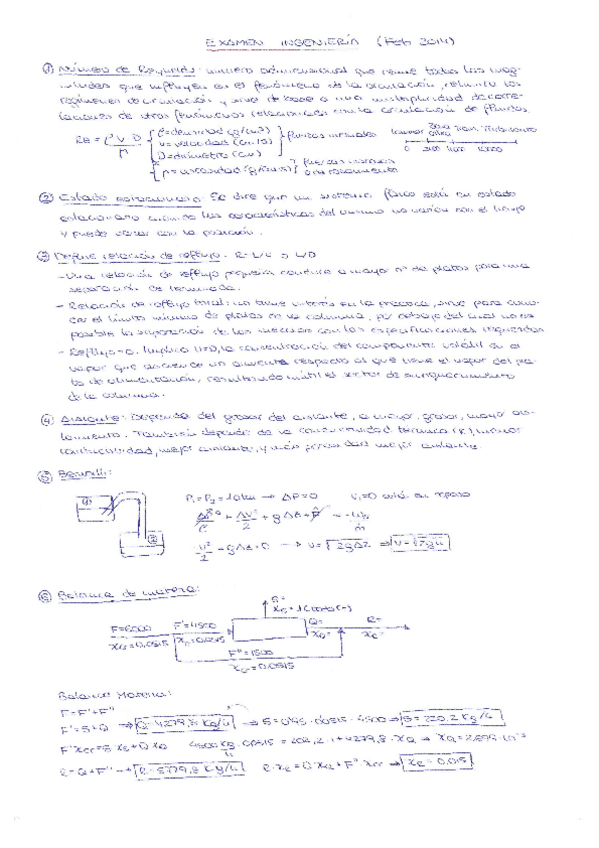 EXAMEN INGENIERÍA (Feb 2014)
① Número de Reynolds: número adimensional que reúne todas las mag-
nitudes que influyen en el fenómeno de la circulación, relaciona los
regímenes de circulación y sirve de base a una multiplicidad de corre-
laciones de otros fenómenos relacionados con la circulación de fluidos.
Re = ρ V D / μ
ρ = densidad (g/cm³)
V = velocidad (cm/s)
D = diámetro (cm)
fuerzas inerciales
μ = viscosidad (g/cm·s)
② Estado estacionario: Se dice que un sistema físico está en estado
estacionario cuando las características del mismo no varían con el tiempo
y puede variar con la posición.
③ Define relación de reflujo: R = L/V o L/D
- Una relación de reflujo pequeña conduce a mayor nº de platos para una
separación determinada.
- Relación de reflujo total: no tiene interés en la práctica, sirve para cono-
cer el límite mínimo de platos de la columna, por debajo del cual no es
posible la separación de las mezclas con las especificaciones requeridas.
- Reflujo = 0. Implica L=0, la concentración del componente volátil en el
vapor que asciende no aumenta respecto al que tiene el vapor del pla-
to de alimentación, resultando inútil el sector de enriquecimiento
de la columna.
④ Aislante: Depende del grosor del aislante, a mayor grosor, mayor ais-
lamiento. También depende de la conductividad térmica (k), menor
conductividad, mejor aislante, y más porosidad mejor aislante.
⑤ Bernoulli:
P₁ = P₂ = 1 atm → ΔP = 0
v²/2 - gΔz = 0 → v = √2gΔz
⑥ Balance de materia:
F=6000
x_F=0.0515
F'=4500
x_F=0.0515
F''=1500
x_F=0.0515
S=
Q=
x_Q=
R=
x_R=
Balance Materia:
F = F' + F''
F' = S + Q → Q = 4279,8 Kg/h → S = 0,95 · 0,0515 · 4500 → S = 220,2 Kg/h
R = Q + F'' → R = 5779,8 Kg/h R·x_R = Q·x_Q + F''·x_F → x_R = 0,015